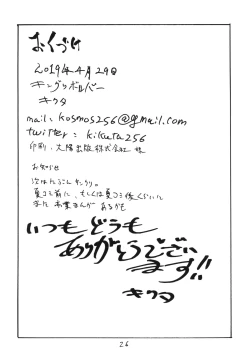 おくづけ
2019年4月29日
キングリボルバー
キクタ
mail: kosmos256@gmail.com
twitter: kikuta256
印刷: 大陽出版株式会社 様
お知らせ
次は
夏コミ前に、もしくは夏コミ後くらいに
また 本業まんが あるかも
いつも どうも
ありがとうござい
ます!!
キクタ
26